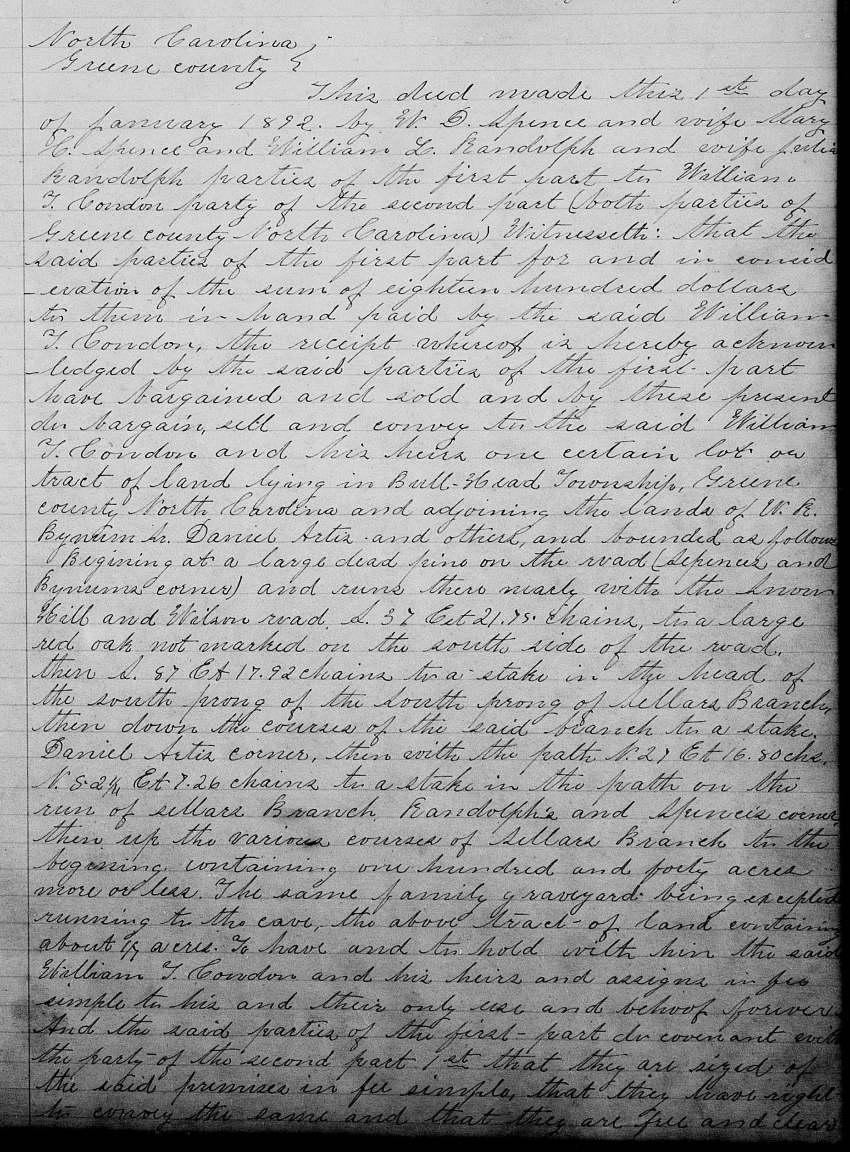 North Carolina }
Greene county }
This deed made this 1st day
of January 1892. by W. D. Spence and wife Mary
C. Spence and William L. Randolph and wife Julia
Randolph parties of the first part to William
T. Condon party of the second part (both parties of
Greene county North Carolina) Witnesseth: that the
said parties of the first part for and in consid
-eration of the sum of eighteen hundred dollars
to them in hand paid by the said William
T. Condon, the receipt whereof is hereby acknow
-ledged by the said parties of the first part
have bargained and sold and by these present
do bargain, sell and convey to the said William
T. Condon and his heirs one certain lot or
tract of land lying in Bull-Head Township, Greene
county North Carolina and adjoining the lands of W. R.
Bynum Sr. Daniel Artis and others, and bounded as follows
Begining at a large dead pine on the road (Spences and
Bynums corner) and runs then nearly with the Snow
Hill and Wilson road S. 37 Et 21.75 chains, to a large
red oak not marked on the south side of the road.
then S. 87 Et 17.92 chains to a stake in the head of
the south prong of the south prong of Sellars Branch,
then down the courses of the said branch to a stake.
Daniel Artis corner, then with the path N. 27 Et 16.80 chs.
N. Et 7.26 chains to a stake in the path on the
run of Sellars Branch, Randolph's and Spence's corner,
then up the various courses of Sellars Branch to the
begining containing one hundred and forty acres
more or less. The same family graveyard being excepted
running to the cave, the above tract of land containing
about acres. To have and to hold with him the said
William T. Condon and his heirs and assigns in fee
simple to his and their only use and behoof forever.
And the said parties of the first part do covenant with
the party of the second part 1st that they are sized of
the said premises in fee simple, that they have right
to convey the same and that they are free and clear